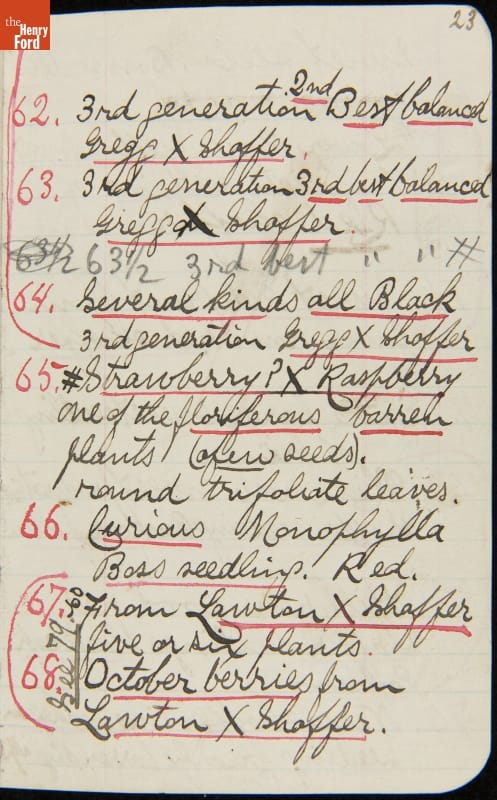 the
Henry
Ford
23
62. 3rd generation 2nd Best balanced
Gregg X Shaffer.
63. 3rd generation 3rd best balanced
Gregg X Shaffer.
63½ 63½ 3rd best " " #
64. Several kinds all Black
3rd generation Gregg X Shaffer
65. # Strawberry? X Raspberry
one of the floriferous barren
plants (often seeds).
round trifoliate leaves.
66. Curious Monophylla
Boss seedling. Red.
67. From Lawton X Shaffer
five or six plants.
68. October berries from
Lawton X Shaffer.
See 79.60